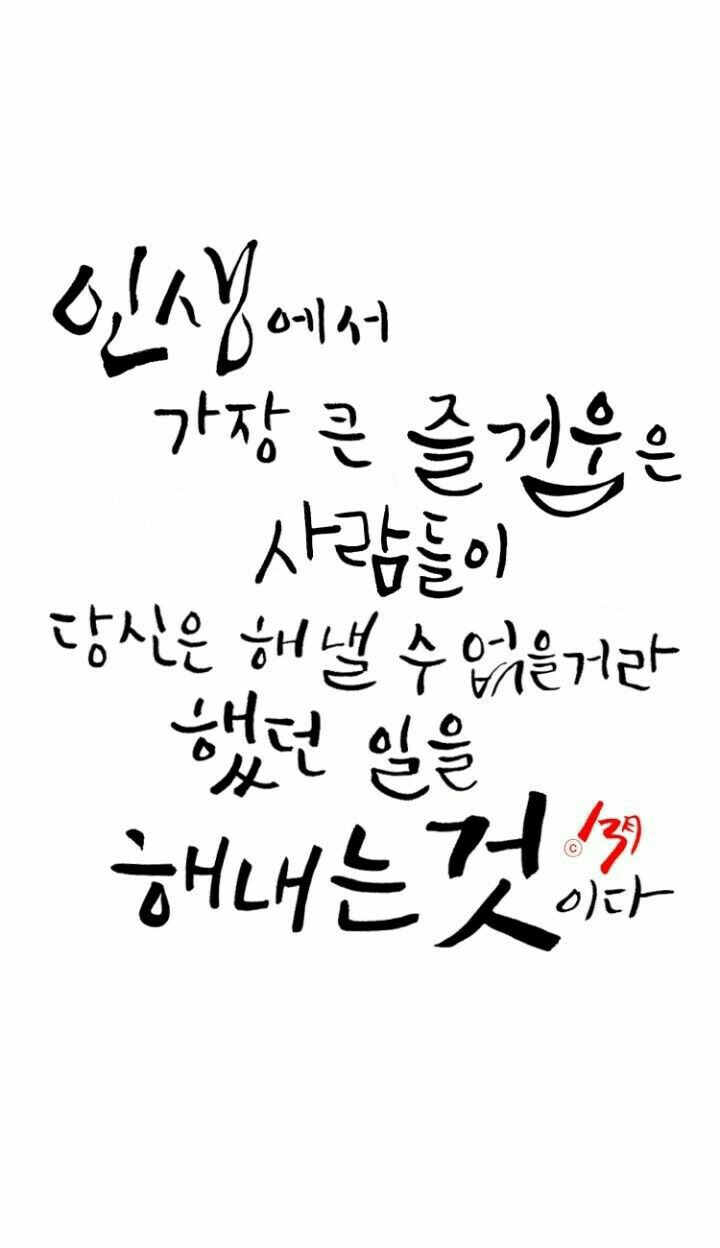 인생에서
가장 큰 즐거움은
사람들이
당신은 해낼 수 없을거라
했던 일을
해내는 것이다
©